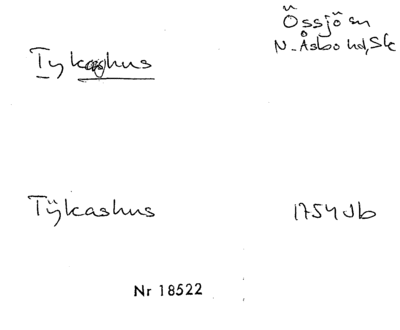 Tykashus
Össjö sn
N. Åsbo hd, Sk
Tÿkashus
1754 Jb
Nr 18522